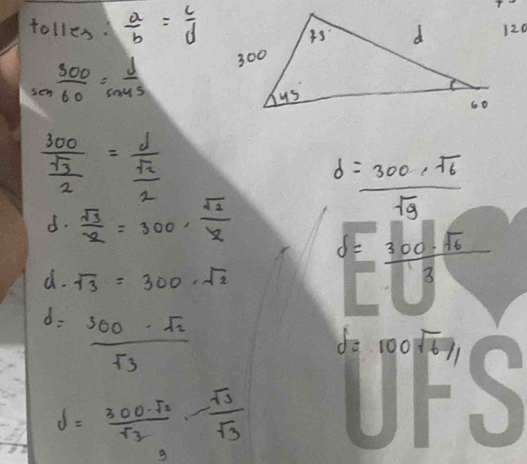 tolles: a/b = c/d
300/sen 60 = d/sen 45
300/(√3/2) = d/(√2/2)
d · √3/2 = 300 · √2/2
d · √3 = 300 · √2
d = 300 · √2 / √3
d = 300 · √2 / √3 · √3/√3
300
d
45
60
120
d = 300 · √6 / √9
d = 300 · √6 / 3
d = 100√6 //
EU
UFS